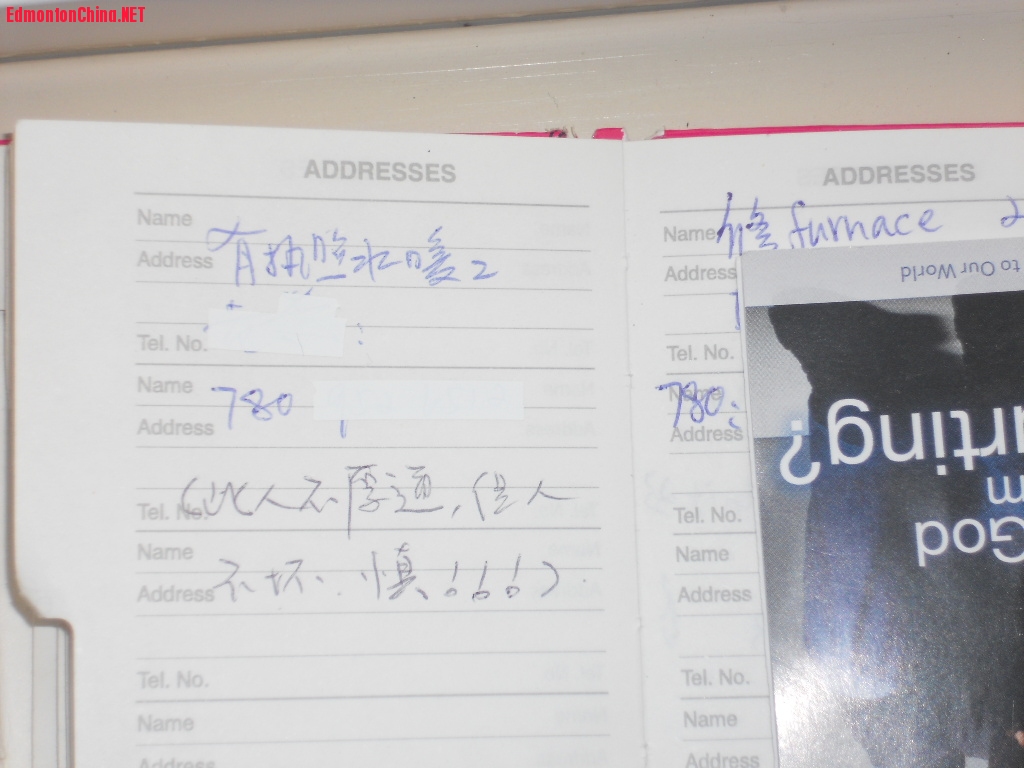 EdmontonChina.NET
ADDRESSES
Name
Address 有执照水暖工
Tel. No.
Name 780
Address
Tel. No. (此人不厚道,但人
Name
Address 不坏. 慎!!!)
Tel. No.
Name
Address
ADDRESSES
Name 修 furnace
Address
Tel. No.
Name 780
Address
Tel. No.
Name
Address
Tel. No.
Name
Address
to Our World
urting?
m
God